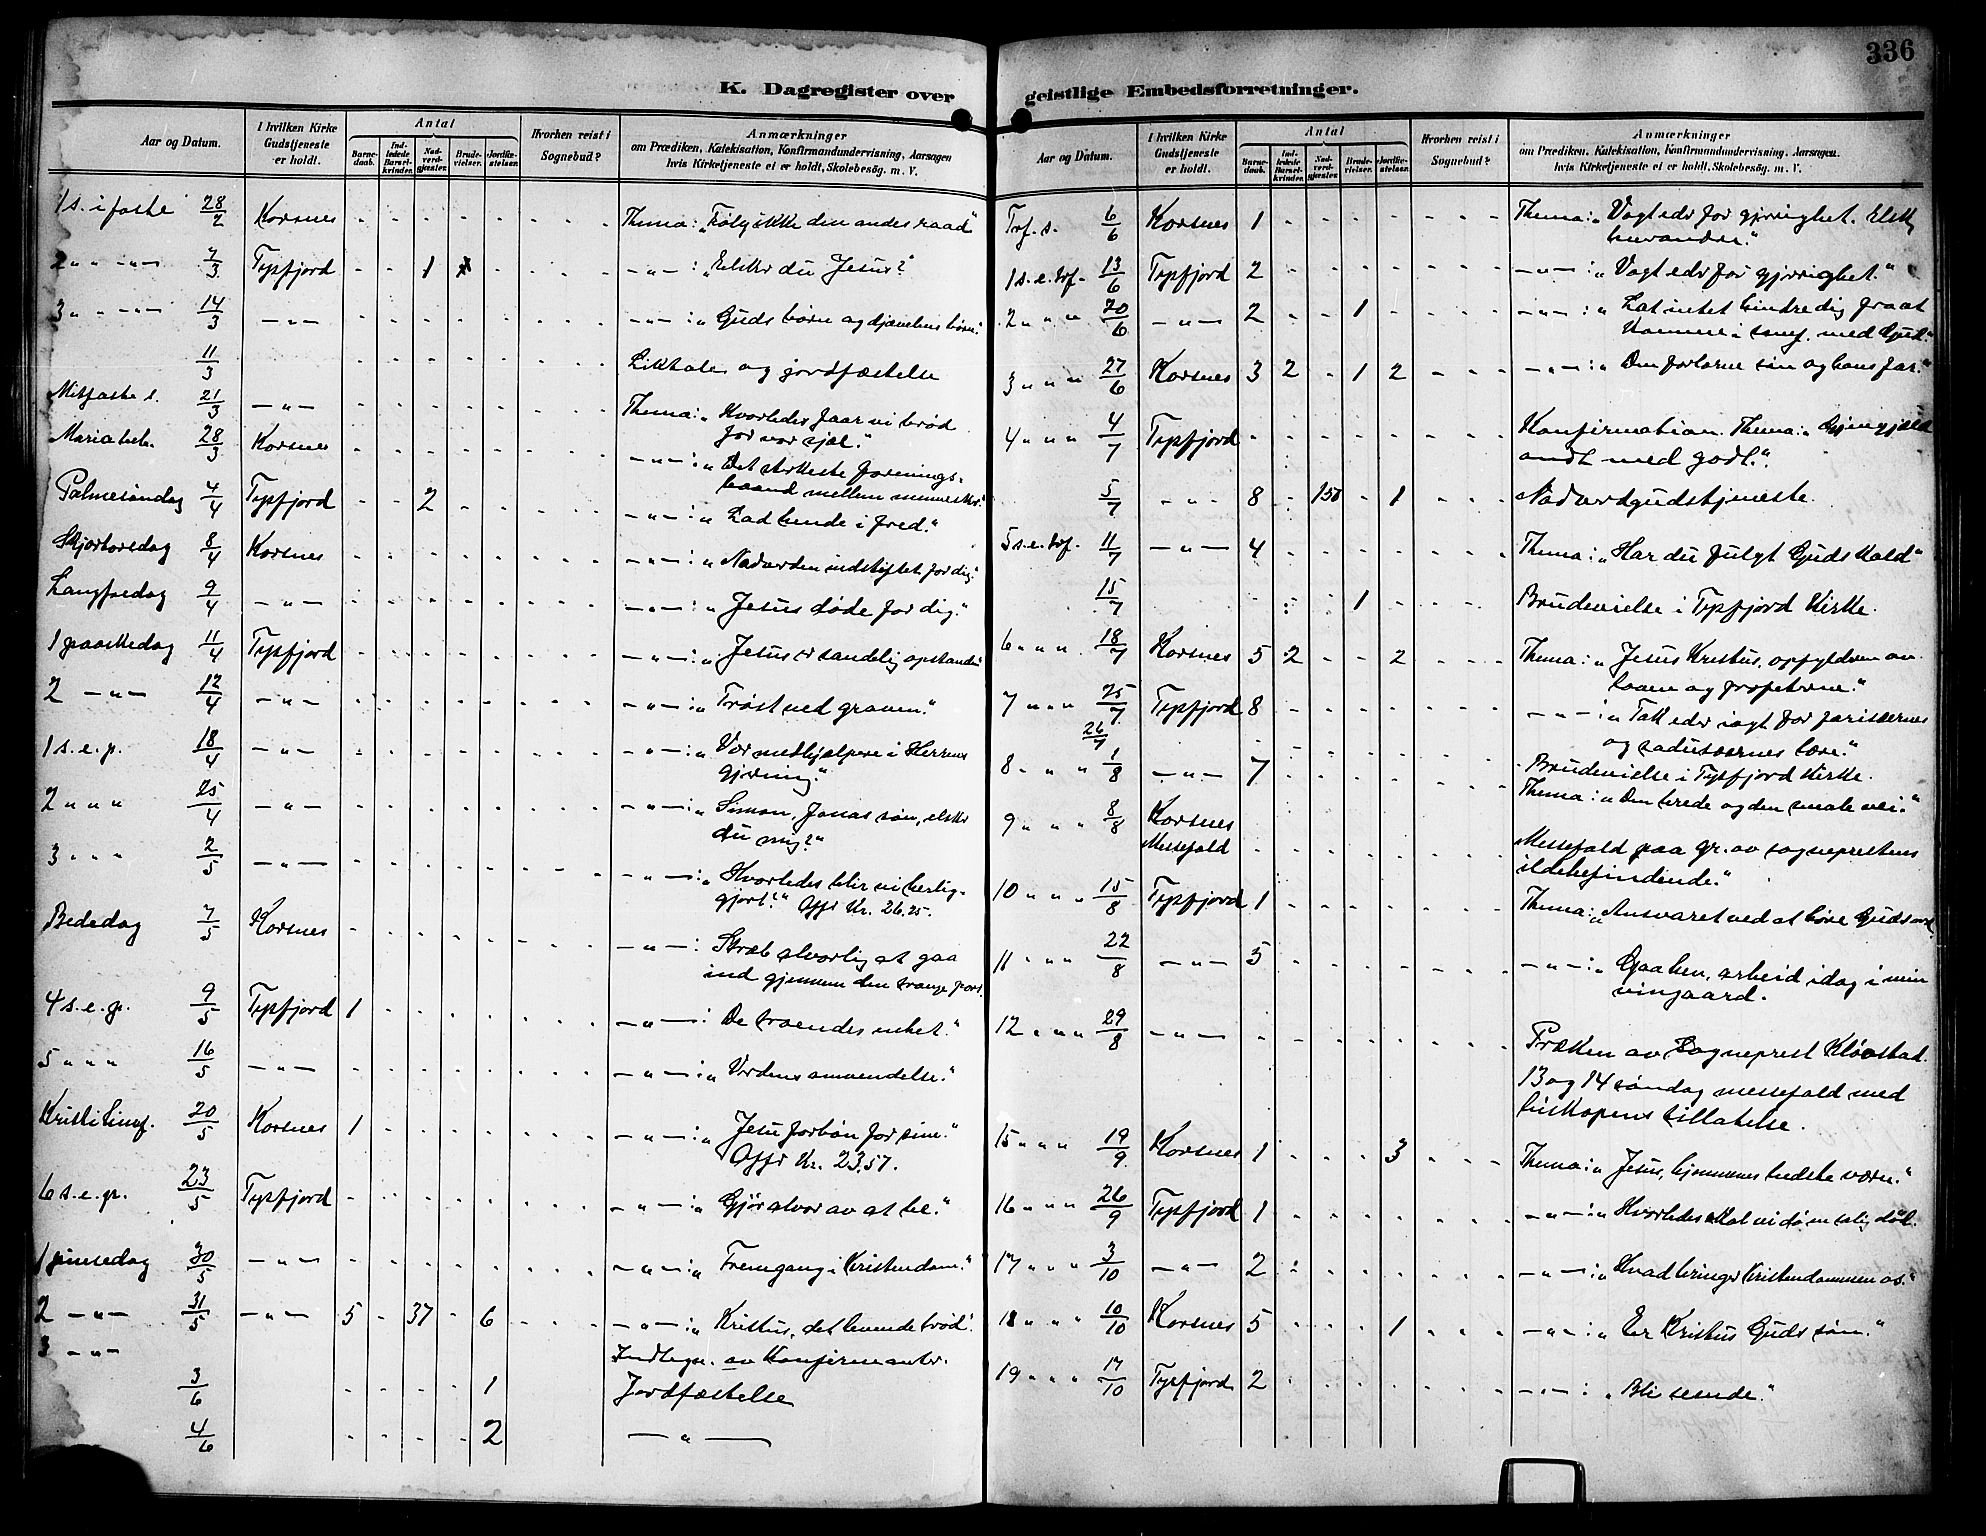 336
K. Dagregister over
Aar og Datum.
I hvilken Kirke Gudstjeneste er holdt.
Antal
Barnedaab.
Indledede Barselkvinder.
Nadverdgjæster.
Brudevielser.
Jordfæstelser.
Hvorhen reist i Sognebud?
Anmærkninger
om Prædiken, Katekisation, Konfirmandundervisning, Aarsagen
hvis Kirketjeneste ei er holdt, Skolebesög. m. V.
1 s. i faste 28/2 Korsnes Thema: „Følg ikke den ondes raad"
2 " " —"— 7/3 Tysfjord 1 —"—: „Elsker du Jesus?"
3 " " —"— 14/3 —"— —"—: „Guds børn og djævelens børn."
11/3 Liktale og jordfæstelse
Mitfaste s. 21/3 —"— Thema: „Hvorledes faar vi brød
for vor sjæl."
Maria beb. 28/3 Korsnes —"—: „Det sterkeste forenings-
baand mellem mennesker."
Palmesøndag 4/4 Tysfjord 2 —"—: „Lad hende i fred."
Skjærtorsdag 8/4 Korsnes —"—: „Nadverden indstiftet for dig."
Langfredag 9/4 —"— —"—: „Jesus døde for dig."
1 paaskedag 11/4 Tysfjord —"—: „Jesus er sandelig opstanden"
2 —"— 12/4 —"— —"—: „Trøst ved graven."
1 s. e. p. 18/4 —"— —"—: „Vær medhjælpere i Herrens
gjerning."
2 " " " 25/4 —"— —"—: „Simon, Jonas søn, elsker
du mig?"
3 " " " 2/5 —"— —"—: „Hvorledes blir vi herlig-
gjort?" Offer Kr. 26.25.
Bededag 7/5 Korsnes —"—: Stræb alvorlig at gaa
ind gjennem den trange port.
4 s. e. p. 9/5 Tysfjord 1 —"—: De troendes enhet."
5 " " " 16/5 —"— —"—: „Verdens omvendelse."
Kristi Himf. 20/5 Korsnes 1 —"—: „Jesu forbøn for sine."
Offer Kr. 23.57.
6 s. e. p. 23/5 Tysfjord —"—: „Gjør alvor av at be."
1 pinsedag 30/5 —"— —"—: „Fremgang i Kristendom."
2 —"— 31/5 —"— 5 37 6 —"—: „Kristus, det levende brød."
3 —"— Indtegn. av Konfirmanter.
3/6 1 Jordfæstelse
4/6 2 —"—
geistlige Embedsforretninger.
Aar og Datum.
I hvilken Kirke Gudstjeneste er holdt.
Antal
Barnedaab.
Indledede Barselkvinder.
Nadverdgjæster.
Brudevielser.
Jordfæstelser.
Hvorhen reist i Sognebud?
Anmærkninger
om Prædiken, Katekisation, Konfirmandundervisning, Aarsagen.
hvis Kirketjeneste ei er holdt, Skolebesög. m. V.
Tref. s. 6/6 Korsnes 1 Thema: „Vogt eder for gjerrighet. Elsk
hverandre."
1 s. e. tref. 13/6 Tysfjord 2 —"—: „Vogt eder for gjerrighet."
2 " " " 20/6 —"— 2 1 —"—: „Lat intet hindre dig fra at
komme i samf. med Gud."
3 " " " 27/6 Korsnes 3 2 1 2 —"—: „Den fortapte søn og hans far."
4 " " " 4/7 Tysfjord Konfirmation. Thema: „Gjengjæld
ondt med godt."
5/7 —"— 8 150 1 Nadverdgudstjeneste.
5 s. e. tref. 11/7 —"— 4 Thema: „Har du fulgt Guds kald"
15/7 1 Brudevielse i Tysfjord Kirke.
6 " " " 18/7 Korsnes 5 2 2 Thema: „Jesus Kristus, opfylderen av
loven og profeterne."
7 " " " 25/7 Tysfjord 8 —"—: „Tak eder iagt for farisæernes
og sadusæernes lære."
26/7 Brudevielse i Tysfjord Kirke.
8 " " " 1/8 —"— 7 Thema: „Den brede og den smale vei."
9 " " " 8/8 Korsnes
Messefald Messefald paa gr. av sogneprestens
ildebefindende."
10 " " " 15/8 Tysfjord 1 Thema: „Ansvaret ved at høre Guds ord.
11 " " " 22/8 —"— 5 —"—: „Gaa hen, arbeid idag i min
vingaard.
12 " " " 29/8 —"— Præken av Sogneprest Kløvstad.
13 og 14 søndag messefald med
biskopens tillatelse.
15 " " " 19/9 Korsnes 1 3 Thema: „Jesus, hjemmenes bedste værn."
16 " " " 26/9 Tysfjord 1 —"—: „Hvorledes skal vi dø en salig død.
17 " " " 3/10 —"— 2 —"—: „Hvad bringer Kristendommen os."
18 " " " 10/10 Korsnes 5 1 —"—: „Er Kristus Guds søn."
19 " " " 17/10 Tysfjord 2 —"—: „Bli seende."